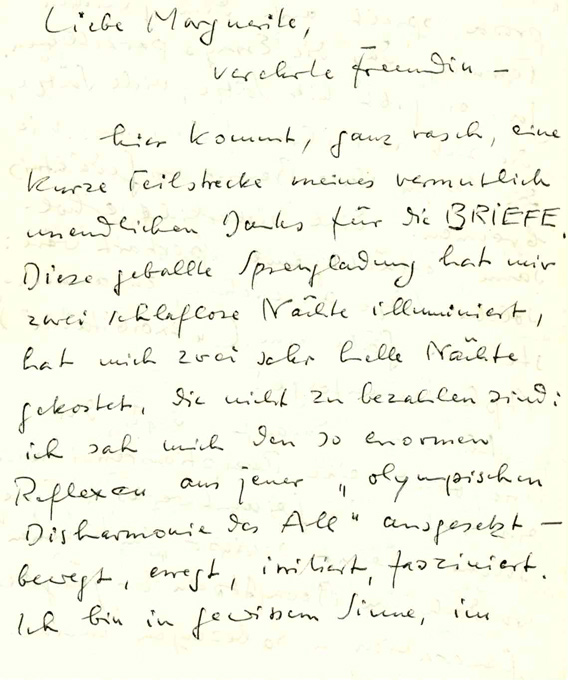 Liebe Marguerite,
verehrte Freundin –
hier kommt, ganz rasch, eine
kurze Teilstrecke meines vermutlich
unendlichen Danks für die BRIEFE.
Diese geballte Sprengladung hat mir
zwei schlaflose Nächte illuminiert,
hat mich zwei sehr helle Nächte
gekostet, die nicht zu bezahlen sind:
ich sah mich den so enormen
Reflexen aus jener „olympischen
Disharmonie des All“ ausgesetzt –
bewegt, erregt, irritiert, fasziniert.
Ich bin in gewissem Sinne, im